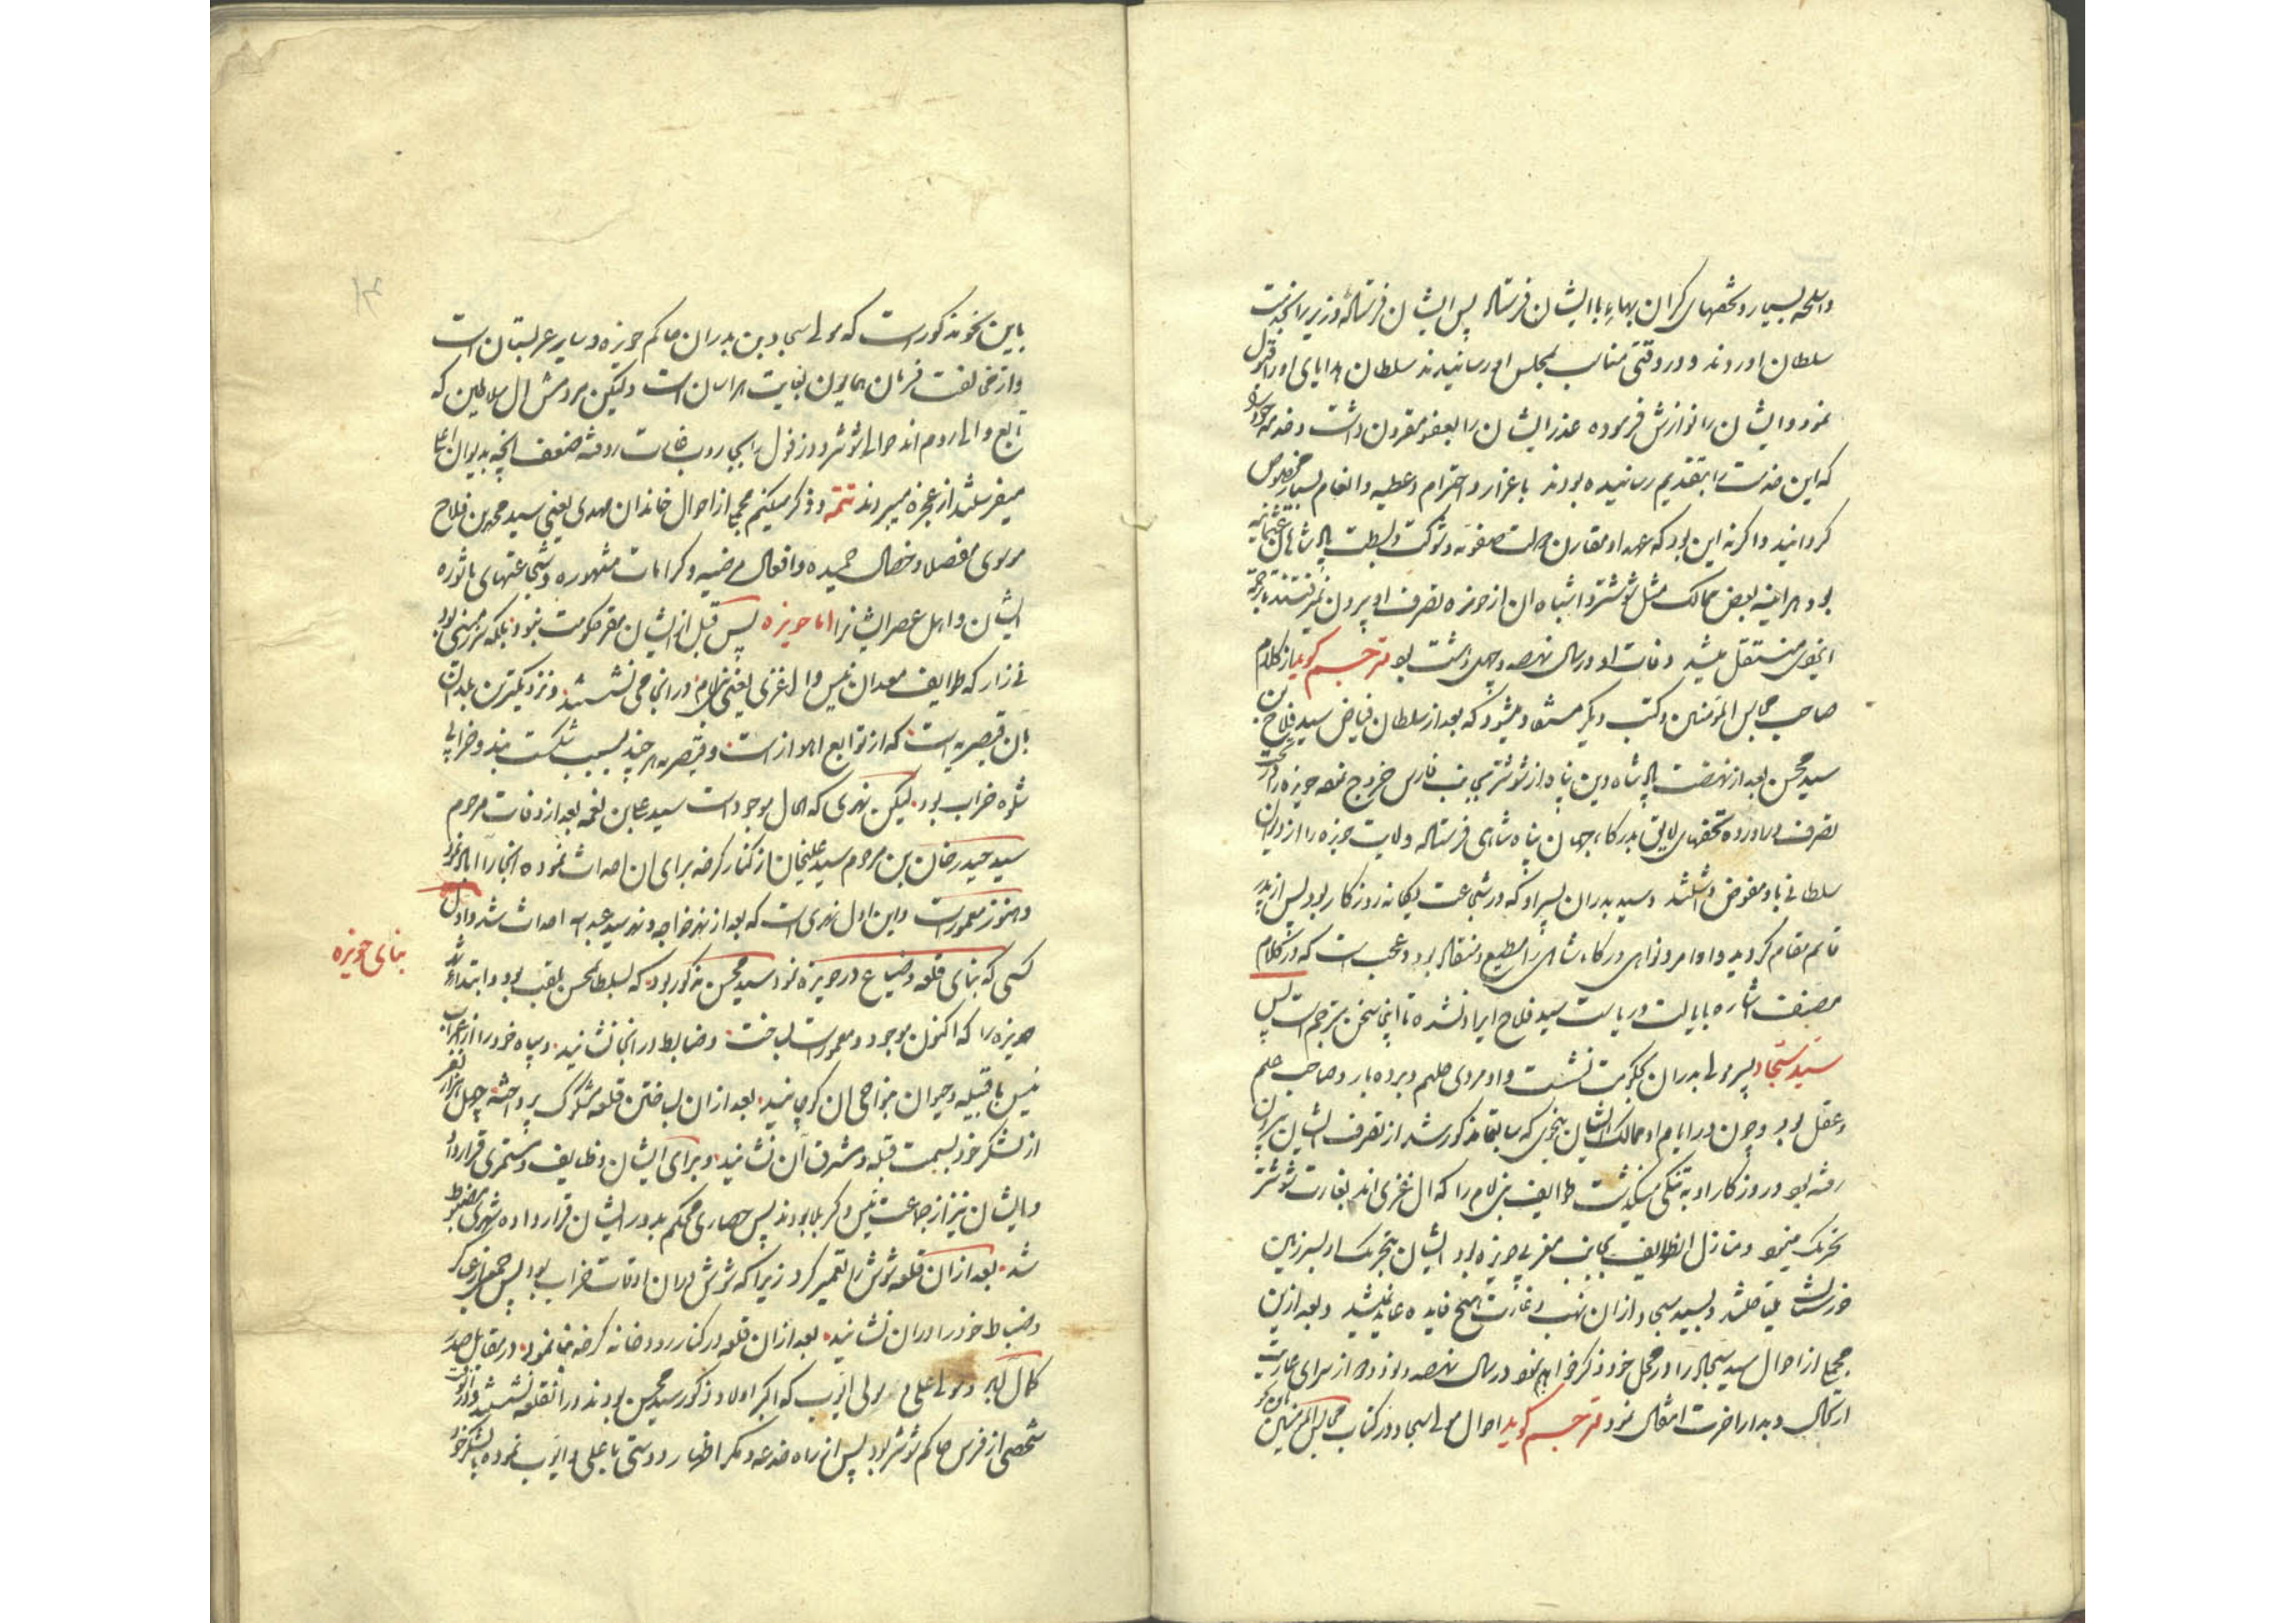 واسلحه بسیار و تحفهای گران بهاء باایشان فرستاد پس ایشان فرستادهٔ وزیر را بخدمت
سلطان اوردند و در وقتی مناسب بمجلس او رسانیدند سلطان هدایای او را قبول
نمود و ایشان را نوازش فرموده عذر ایشان را بعفو مقرون داشت و خدمه خود را
که این خدمت را بتقدیم رسانیده بودند باعزاز و احترام و عطیه و انعام بسیار مخصوص
کردانید واکر نه این بود که عهد او مقارن دولت صفویه و شوکت و سلطنت پادشاهان عثمانیه
بود هراینه بعض ممالک مثل شوشتر و اشباه ان از حوزه تصرف او بیرون نمیرفتند
مستقل میشد وفات او در سال نهصد و چهل و هشت بود مترجم کوید از کلام
صاحب مجالس المؤمنین و کتب دیکر مستفاد میشود که بعد از سلطان فیاض سید فلاح بن
سید محسن بعد از نهضت پادشاه دین پناه از شوشتر بجانب فارس خروج نموده حویزه را در تحت
تصرف دراورده تحفهای لایق بدرکاه جهان پناه شاهی فرستاد ولایت حویزه را از دیوان
سلطانی باو مفوض داشتند و سید بدران پسر او که در شجاعت یکانه روزکار بود پس از پدر
قائم مقام کردید و اوامر و نواهی درکاه شاهی را مطیع و منقاد بود و عجب است که در کلام
مصنف اشاره بایالت و ریاست سید فلاح ایراد نشده تا اینجا سخن مترجم است پس
سید سجاد پسر مولی بدران بحکومت نشست و او مردی حلیم و بردبار و صاحب حلم
و عقل بود و چون در ایام او ممالک ایشان بنحوی که سابقا مذکور شد از تصرف ایشان بیرون
رفته بود و روزکار او به تنکی میکذشت طوایف بنی لام را که ال غزی اند بغارت شوشتر
تحریک مینمود و منازل انطوایف بجانب مغربی حویزه بود ایشان بتحریک او بسرزمین
و سید سجاد از ان نهب و غارت هیچ فایده عاید نمیشد و بعد ازین
مجملی از احوال سید سجاد را در محل خود ذکر خواهیم نمود در سال نهصد و نود و دو از سرای عاریت
ارتحال و بدار اخرت انتقال نمود مترجم کوید احوال مولی سجاد در کتاب مجالس المؤمنین
باین نحو مذکور است که مولی سجاد بن بدران حاکم حویزه و سایر عربستان است
و از مخالفت فرمان همایون بغایت هراسان است ولیکن مردمش ال سلاطین که
تابع والی روم اند حوالی شوشتر و دزفول را بجاروب غارت روفته ضعف انچه بدیوان اعلی
میفرستند از عجزه میبرند تتمه و ذکر میکنیم مجملی از احوال خاندان مهدی یعنی سید محمد بن فلاح
موسوی مفصلا و خصال حمیده و افعال مرضیه و کرامات مشهوره و شجاعتهای ماثوره
ایشان و اهل عصر ایشانرا اما حویزه پس قبل از ایشان مقر حکومت نبود بلکه سرزمینی بود
نی زار که طوایف معدان نیس و ال غزی یعنی بنی لام در انجا می نشستند و نزدیکترین بلدان
بان قیصریه است که از توابع اهواز است و قیصریه هر چند بسبب شکست بند و خرابی
شوه خراب بود لیکن نهری که الحال موجود است سید علی بن نعمه بعد از وفات مرحوم
سید حیدر خان بن مرحوم سید علیخان از کنار کرخه برای ان احداث نموده انجا را اباد نمود
و هنوز معمور است و این اول نهری است که بعد از نهر خواجه و نهر سید عبد الله احداث شد و اول
کسی که بنای قلعه و ضیاع در حویزه نمود سید محسن مذکور بود که بسلطان محسن ملقب بود و ابتداء
بنای حویزه
حویزه را که اکنون موجود و معمور است بساخت و ضابط در انجا نشانید و سپاه خود را از اعراب
نیس با قبیله و حیوان بنواحی ان کوچانید بعد از ان بساختن قلعه مشکوک پرداخته چهل هزار نفر
از لشکر خود بسمت قبله و مشرق آن نشانید و برای ایشان وظایف و مستمری قرار داد
و ایشان نیز از جماعت نیس و کربلا بودند پس حصاری محکم بدور ایشان قرار داده شهری مضبوط
شد بعد از ان قلعه شوش را تعمیر کرد زیرا که شوش دران اوقات خراب بود پس
و ضباط خود را دران نشانید بعد از ان قلعه در کنار رودخانه کرخه بنا نمود در مقابل
و مولی علی و مولی ایوب که اکبر اولاد ذکور سید محسن بودند در انقلعه نشستند و در انوقت
شخصی از فرس حاکم شوشتر بود پس از راه خدعه و مکر اظهار دوستی با علی و ایوب نموده بالشکر خود